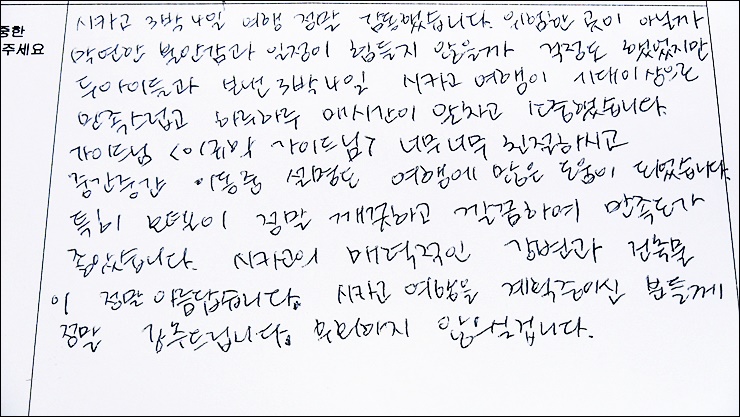 중한
주세요
시카고 3박4일 여행 정말 감동했습니다. 위험한 곳이 아닐까
막연한 불안감과 일정이 힘들지 않을까 걱정도 했었지만
두아이들과 보낸 3박4일 시카고 여행이 기대이상으로
만족스럽고 하루하루 매시간이 알차고 감동했습니다.
가이드님 <이 가이드님> 너무너무 친절하시고
중간중간 이동중 설명도 여행에 많은 도움이 되었습니다.
특히 모텔이 정말 깨끗하고 깔끔하여 만족도가
좋았습니다. 시카고의 매력적인 강변과 건축물
이 정말 아름답습니다. 시카고 여행을 계획중이신 분들께
정말 강추드립니다. 후회하지 않으실겁니다.